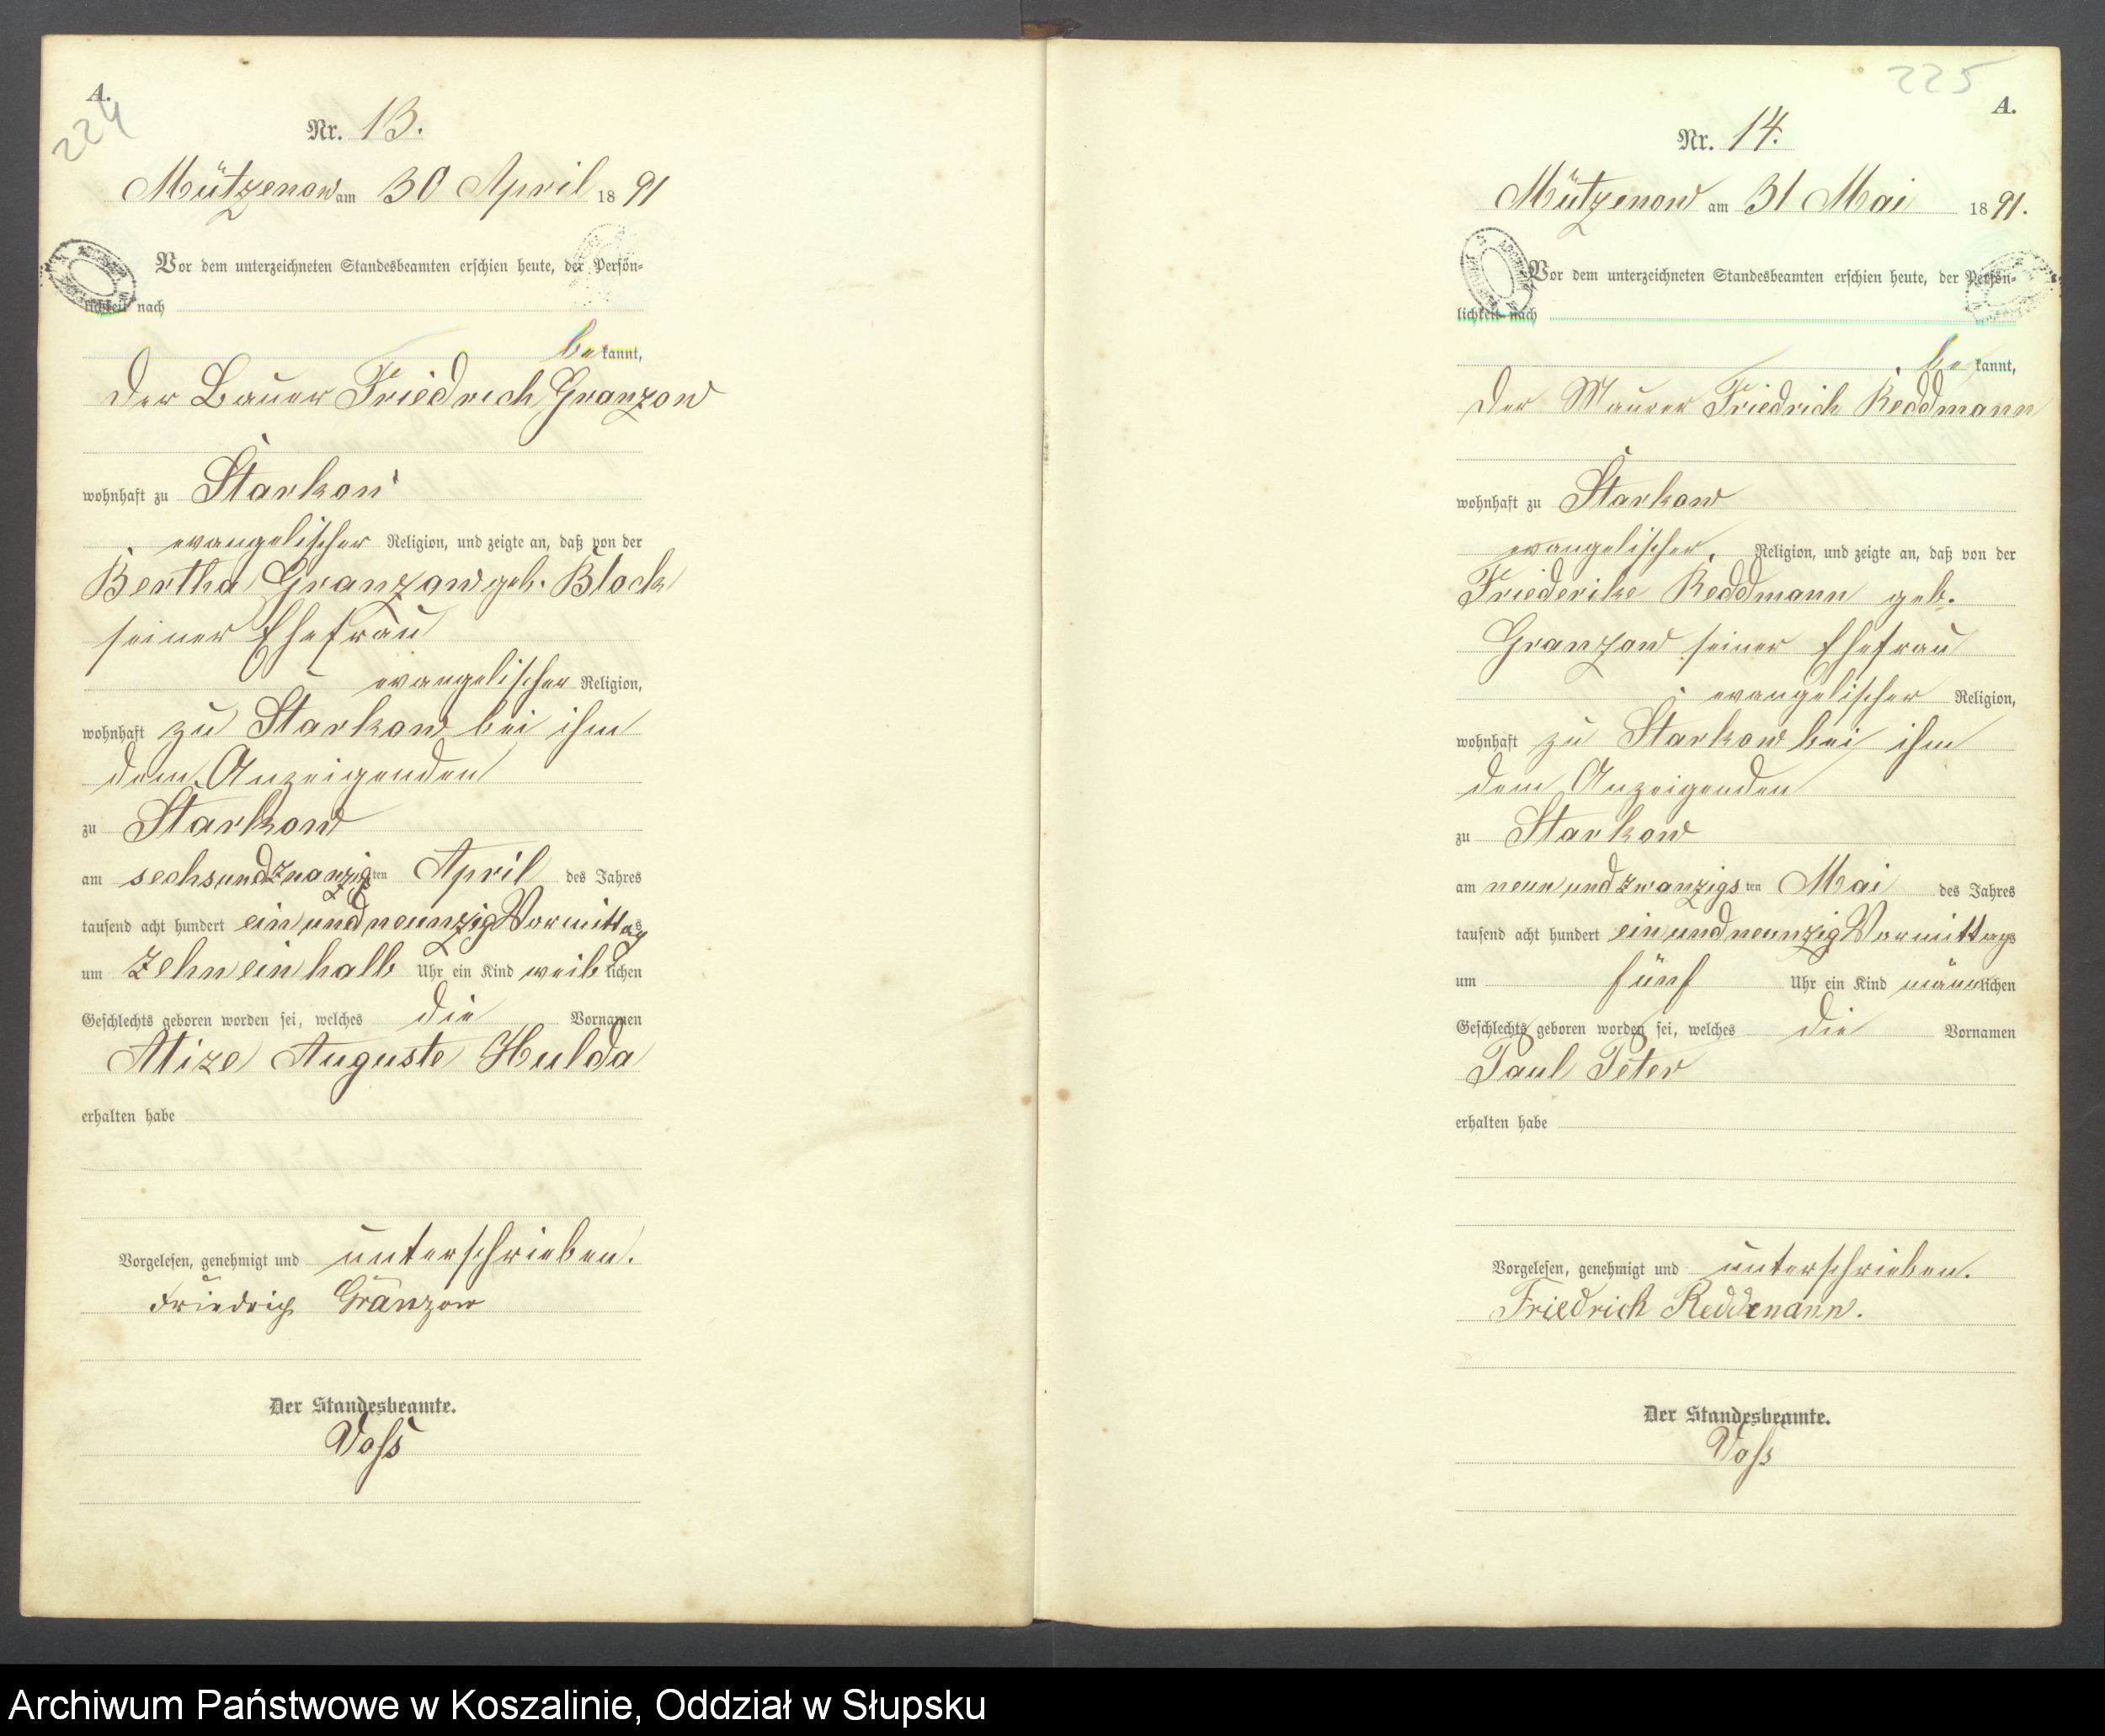 A.
224
Nr. 13.
Mützenow am 30 April 1891
Vor dem unterzeichneten Standesbeamten erschien heute, der Persön-
lichkeit nach
be kannt,
der Bauer Friedrich Granzow
wohnhaft zu Starkow
evangelischer Religion, und zeigte an, daß von der
Bertha Granzow geb. Block
seiner Ehefrau
evangelischer Religion,
wohnhaft zu Starkow bei ihm
dem Anzeigenden
zu Starkow
am sechsundzwanzigsten April des Jahres
tausend acht hundert ein und neunzig Vormittags
um zehn ein halb Uhr ein Kind weiblichen
Geschlechts geboren worden sei, welches die Vornamen
Auguste Hulda
erhalten habe
Vorgelesen, genehmigt und unterschrieben.
Friedrich Granzow
Der Standesbeamte.
Voss
225
A.
Nr. 14.
Mützenow am 31 Mai 1891.
Vor dem unterzeichneten Standesbeamten erschien heute, der Persön-
lichkeit nach
be kannt,
der Maurer Friedrich Reddmann
wohnhaft zu Starkow
evangelischer Religion, und zeigte an, daß von der
Friederike Reddmann geb.
Granzow seiner Ehefrau
evangelischer Religion,
wohnhaft zu Starkow bei ihm
dem Anzeigenden
zu Starkow
am neun und zwanzigsten Mai des Jahres
tausend acht hundert ein und neunzig Vormittags
um fünf Uhr ein Kind männlichen
Geschlechts geboren worden sei, welches die Vornamen
Paul Peter
erhalten habe
Vorgelesen, genehmigt und unterschrieben.
Friedrich Reddmann.
Der Standesbeamte.
Voss
Archiwum Państwowe w Koszalinie, Oddział w Słupsku